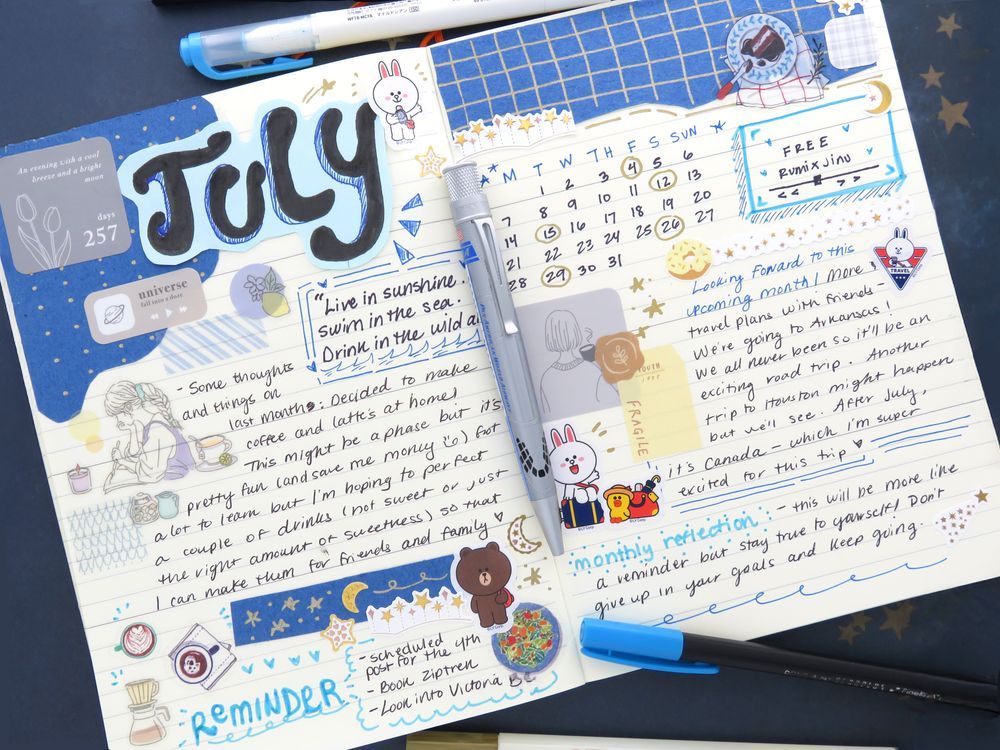 An evening with a cool
breeze and a bright
moon
days
257
universe
fall into a doze
JULY
"Live in sunshine.
swim in the sea.
Drink in the wild
- Some thoughts
and things on
last month: Decided to make
coffee and latte's at home!
This might be a phase but it's
pretty fun and save me money
lot to learn but I'm hoping to perfect
a couple of drinks (not sweet or just
the right amount of sweetness) so that
I can make them for friends and family
REMINDER
- scheduled
post for the 4th
- Book ziptrek
- Look into Victoria BC
M T W TH F S SUN
1 2 3 4 5 6
7 8 9 10 11 12 13
14 15 16 17 18 19 20
21 22 23 24 25 26 27
28 29 30 31
FREE
Rumi x Jinu
<< >>
TRAVEL
Looking forward to this
upcoming month! More
travel plans with friends -
We're going to Arkansas!
We all never been so it'll be an
exciting road trip. Another
trip to Houston might happen
but we'll see. After July,
it's Canada - which I'm super
excited for this trip
YOUTH
FRAGILE
monthly reflection - this will be more like
a reminder but stay true to yourself! Don't
give up in your goals and keep going